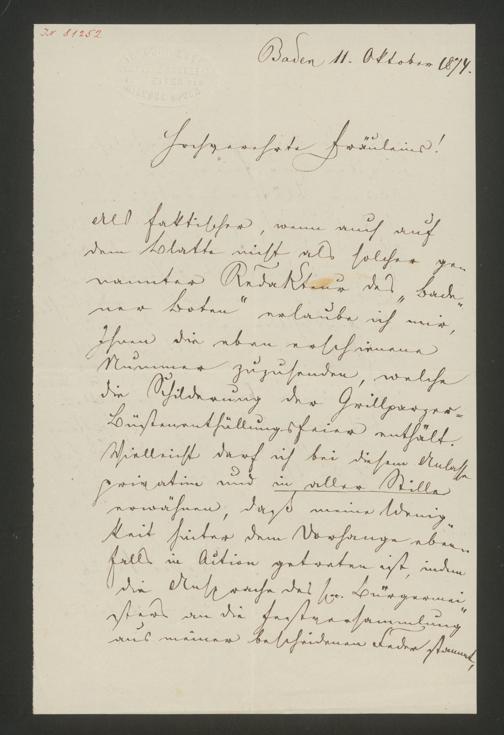 IN 81252
Baden 11. Oktober 1874.
Hochverehrte Fräuleins!
Als faktischer, wenn auch auf
dem Blatte nicht als solcher ge-
nannter Redakteur des „Bade-
ner Boten“ erlaube ich mir,
Ihnen die eben erschienene
Nummer zuzusenden, welche
die Schilderung der Grillparzer-
Büstenenthüllungsfeier enthält.
Vielleicht darf ich bei diesem Anlasse
privatim und in aller Stille
erwähnen, daß meine Wenig-
keit hinter dem Vorhange eben-
falls in Action getreten ist, indem
die Ansprache des Hr. Bürgermei-
sters an die Festversammlung
aus meiner bescheidenen Feder stammt,